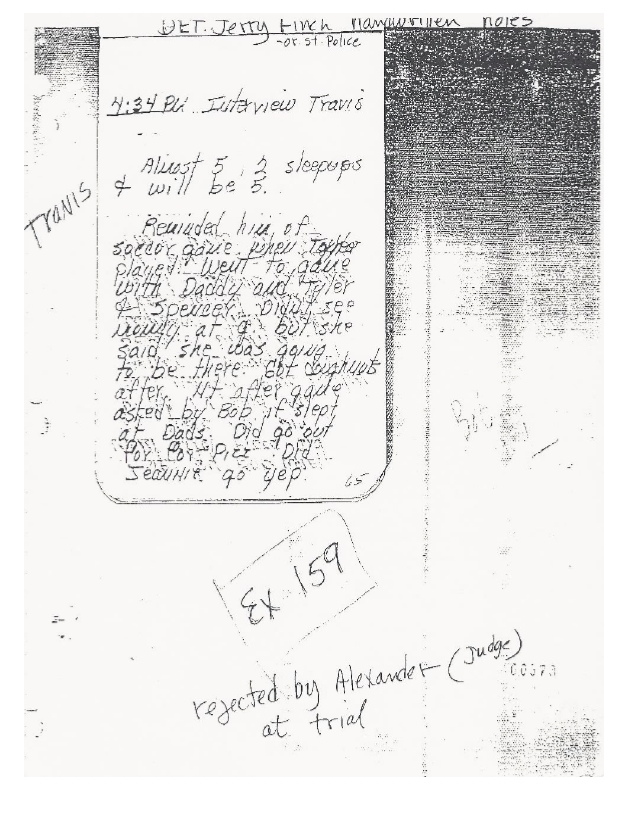 DET. Jerry Finch Handwritten notes
-or. st. Police
4:34 PM Interview Travis
Almost 5, 2 sleepups
& will be 5.
Travis
Reminded him of
soccer game when Tyler
played. Went to game
with Daddy and Tyler
& Spencer. Didn't see
mommy at g but she
said she was going
to be there Got doughnuts
after. Nt after game
asked by Bob if slept
at Dads. Did go out
for Pizz Did
Jeannie go yep
65
Ex 159
rejected by Alexander (Judge)
at trial